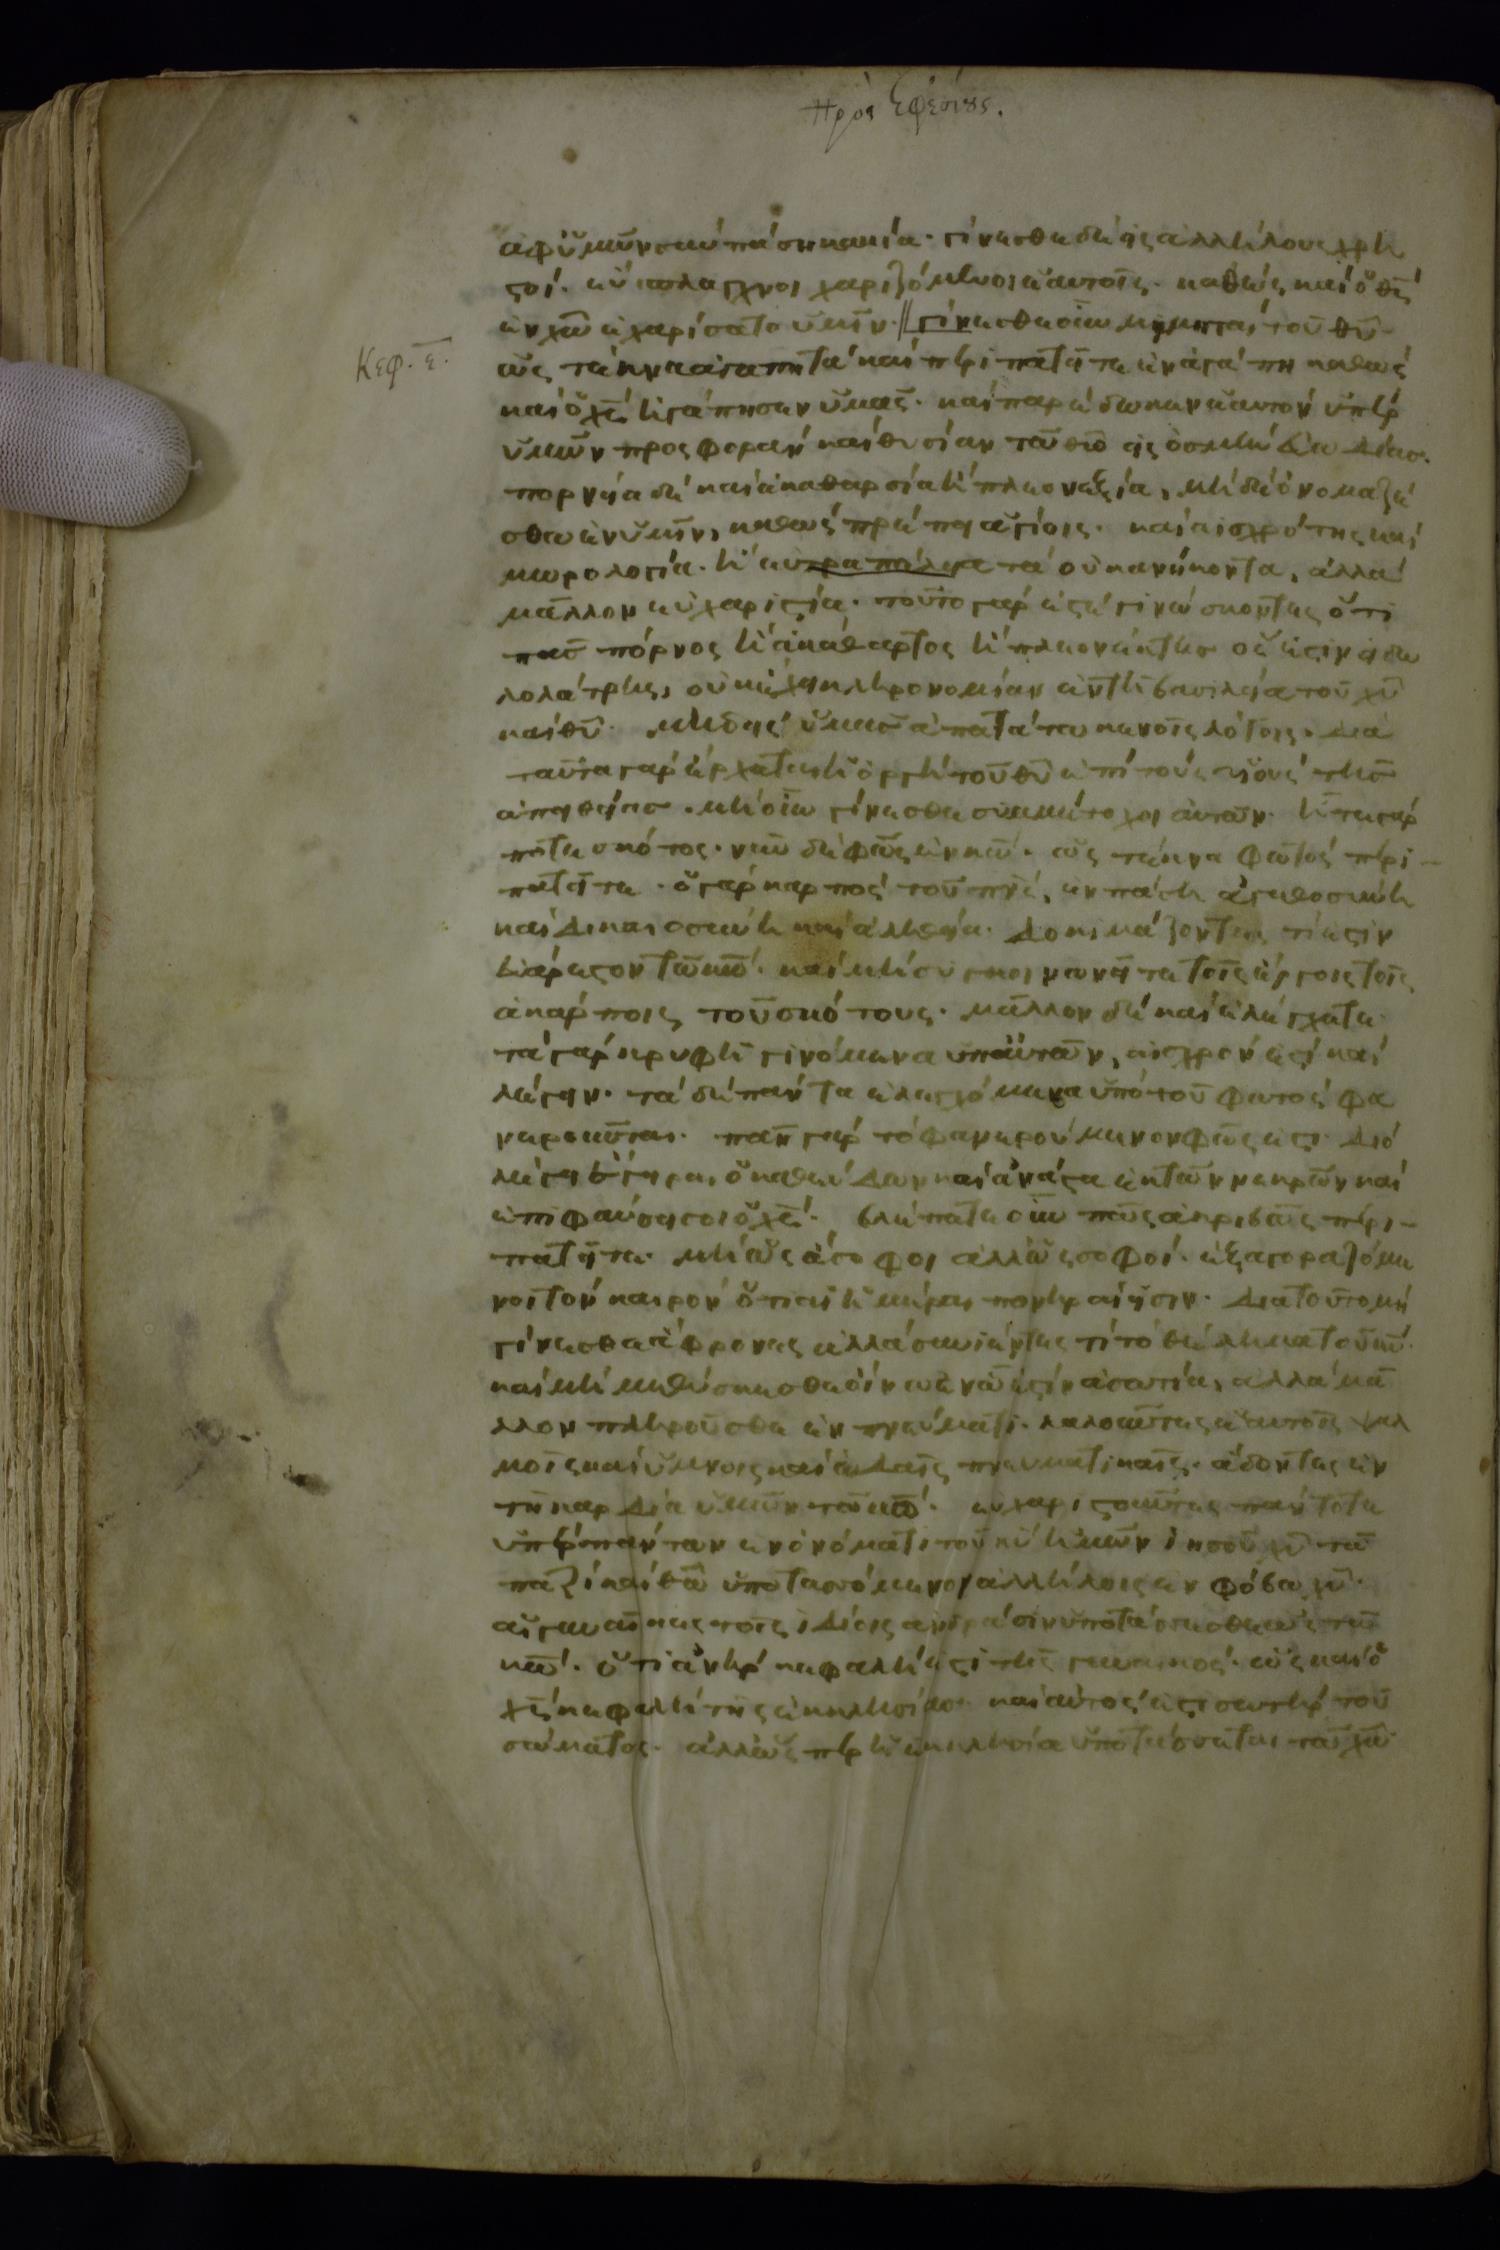 Πρὸς Ἐφεσίους.
ἀφ' ὑμῶν σὺν πάσῃ κακία· γίνεσθε δὲ εἰς ἀλλήλους χρη
στοί· εὔσπλαγχνοι χαριζόμενοι ἑαυτοῖς· καθὼς καὶ ὁ θς
ἐν χω ἐχαρίσατο ὑμῖν· // γίνεσθε οὖν μιμηταὶ τοῦ θυ
Κεφ. ε.
ὡς τέκνα ἀγαπητὰ καὶ περιπατεῖτε ἐν ἀγάπη καθὼς
καὶ ὁ χς ἠγάπησεν ὑμᾶς· καὶ παρέδωκεν ἑαυτὸν ὑπὲρ
ὑμῶν προσφορὰν καὶ θυσίαν τῶ θω εἰς ὀσμὴν εὐωδίας.
πορνεία δὲ καὶ ἀκαθαρσία ἢ πλεονεξία, μὴ δὲ ὀνομαζέ
σθω ἐν ὑμῖν, καθὼς πρέπει ἁγίοις· καὶ αἰσχρότης καὶ
μωρολογία· ἢ εὐτραπελεία τὰ οὐκ ἀνήκοντα, ἀλλὰ
μᾶλλον εὐχαριστία· τοῦτο γάρ ἐστε γινώσκοντες ὅτι
πᾶς πόρνος ἢ ἀκάθαρτος ἢ πλεονέκτης ὅ ἐστιν εἰδω
λολάτρης, οὐκ ἔχει κληρονομίαν ἐν τῆ βασιλεία τοῦ χυ
καὶ θυ· μηδεὶς ὑμᾶς ἀπατάτω κενοῖς λόγοις· διὰ
ταῦτα γὰρ ἔρχεται ἡ ὀργὴ τοῦ θυ ἐπὶ τοὺς υἱοὺς τῆς
ἀπειθείας· μὴ οὖν γίνεσθε συμμέτοχοι αὐτῶν· ἦτε γάρ
ποτε σκότος· νῦν δὲ φῶς ἐν κω· ὡς τέκνα φωτὸς περι-
πατεῖτε· ὁ γὰρ καρπὸς τοῦ πνς, ἐν πάση ἀγαθοσύνη
καὶ δικαιοσύνη καὶ ἀληθεία· δοκιμάζοντες τί ἐστιν
εὐάρεστον τῶ κω· καὶ μὴ συγκοινωνεῖτε τοῖς ἔργοις τοῖς
ἀκάρποις τοῦ σκότους· μᾶλλον δὲ καὶ ἐλέγχετε
τὰ γὰρ κρυφῆ γινόμενα ὑπ' αὐτῶν, αἰσχρόν ἐστι καὶ
λέγειν· τὰ δὲ πάντα ἐλεγχόμενα ὑπὸ τοῦ φωτὸς φα
νεροῦται· πᾶν γὰρ τὸ φανερούμενον φῶς ἐστι· διὸ
λέγει ἔγειραι ὁ καθεύδων καὶ ἀνάστα ἐκ τῶν νεκρῶν καὶ
ἐπιφαύσει σοι ὁ χς· βλέπετε οὖν πῶς ἀκριβῶς περι-
πατεῖτε· μὴ ὡς ἄσοφοι ἀλλ' ὡς σοφοί· ἐξαγοραζόμε
νοι τὸν καιρὸν ὅτι αἱ ἡμέραι πονηραί εἰσιν· διὰ τοῦτο μὴ
γίνεσθε ἄφρονες ἀλλὰ συνιέντες τί τὸ θέλημα τοῦ κυ·
καὶ μὴ μεθύσκεσθε οἴνω ἐν ὧ ἐστὶν ἀσωτία, ἀλλὰ μᾶ
λλον πληροῦσθε ἐν πνεύματι· λαλοῦντες ἑαυτοῖς ψαλ
μοῖς καὶ ὕμνοις καὶ ὠδαῖς πνευματικαῖς· ἄδοντες ἐν
τῆ καρδία ὑμῶν τῶ κω· εὐχαριστοῦντες πάντοτε
ὑπὲρ πάντων ἐν ὀνόματι τοῦ κυ ἡμῶν ἰησοῦ χυ τῶ
πατρὶ καὶ θω ὑποτασσόμενοι ἀλλήλοις ἐν φόβω χυ·
αἱ γυναῖκες τοῖς ἰδίοις ἀνδράσιν ὑποτάσσεσθε ὡς τῶ
κω· ὅτι ἀνήρ κεφαλή ἐστι τῆς γυναικός· ὡς καὶ ὁ
χς κεφαλὴ τῆς ἐκκλησίας· καὶ αὐτός ἐστι σωτὴρ τοῦ
σώματος· ἀλλ' ὥσπερ ἡ ἐκκλησία ὑποτάσσεται τῶ χω